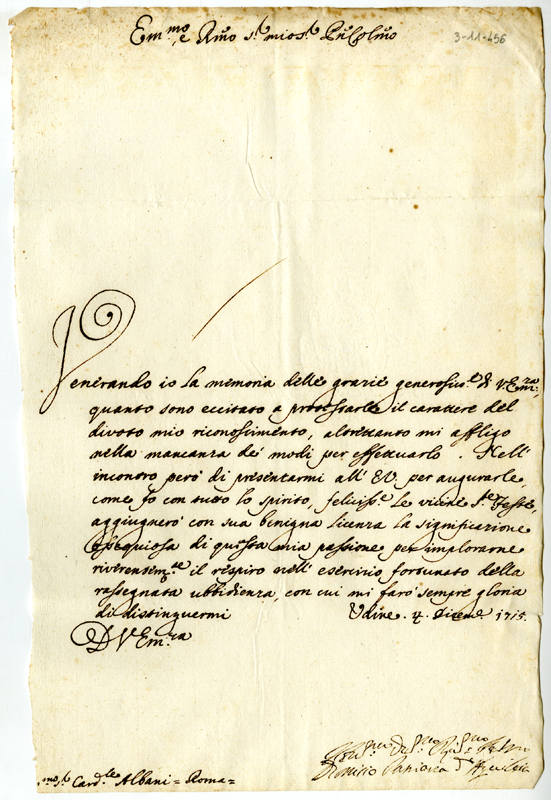 Em.mo, e R.mo S.r mio S.r P.ne Col.mo
3-11-456
Venerando io la memoria delle grazie generosiss.e di V. Em.za,
quanto sono eccitato a protestarle il carattere del
divoto mio riconoscimento, altrettanto mi affligo
nella mancanza dei modi per effettuarlo. Nell'
incontro però di presentarmi all' E.V. per augurarle,
come fo con tutto lo spirito, feliciss.e le vicine S.te Feste,
aggiugnerò con sua benigna licenza la significazione
ossequiosa di questa mia passione per implorarne
riverentem.te il respiro nell' esercizio fortunato della
rassegnata ubbidienza, con cui mi farò sempre gloria
di distinguermi Udine. 4. Dicemb. 1715.
D V Em.za
Dionisio Patriarca d'Aquileia
.mo S.r Card.le Albani = Roma =